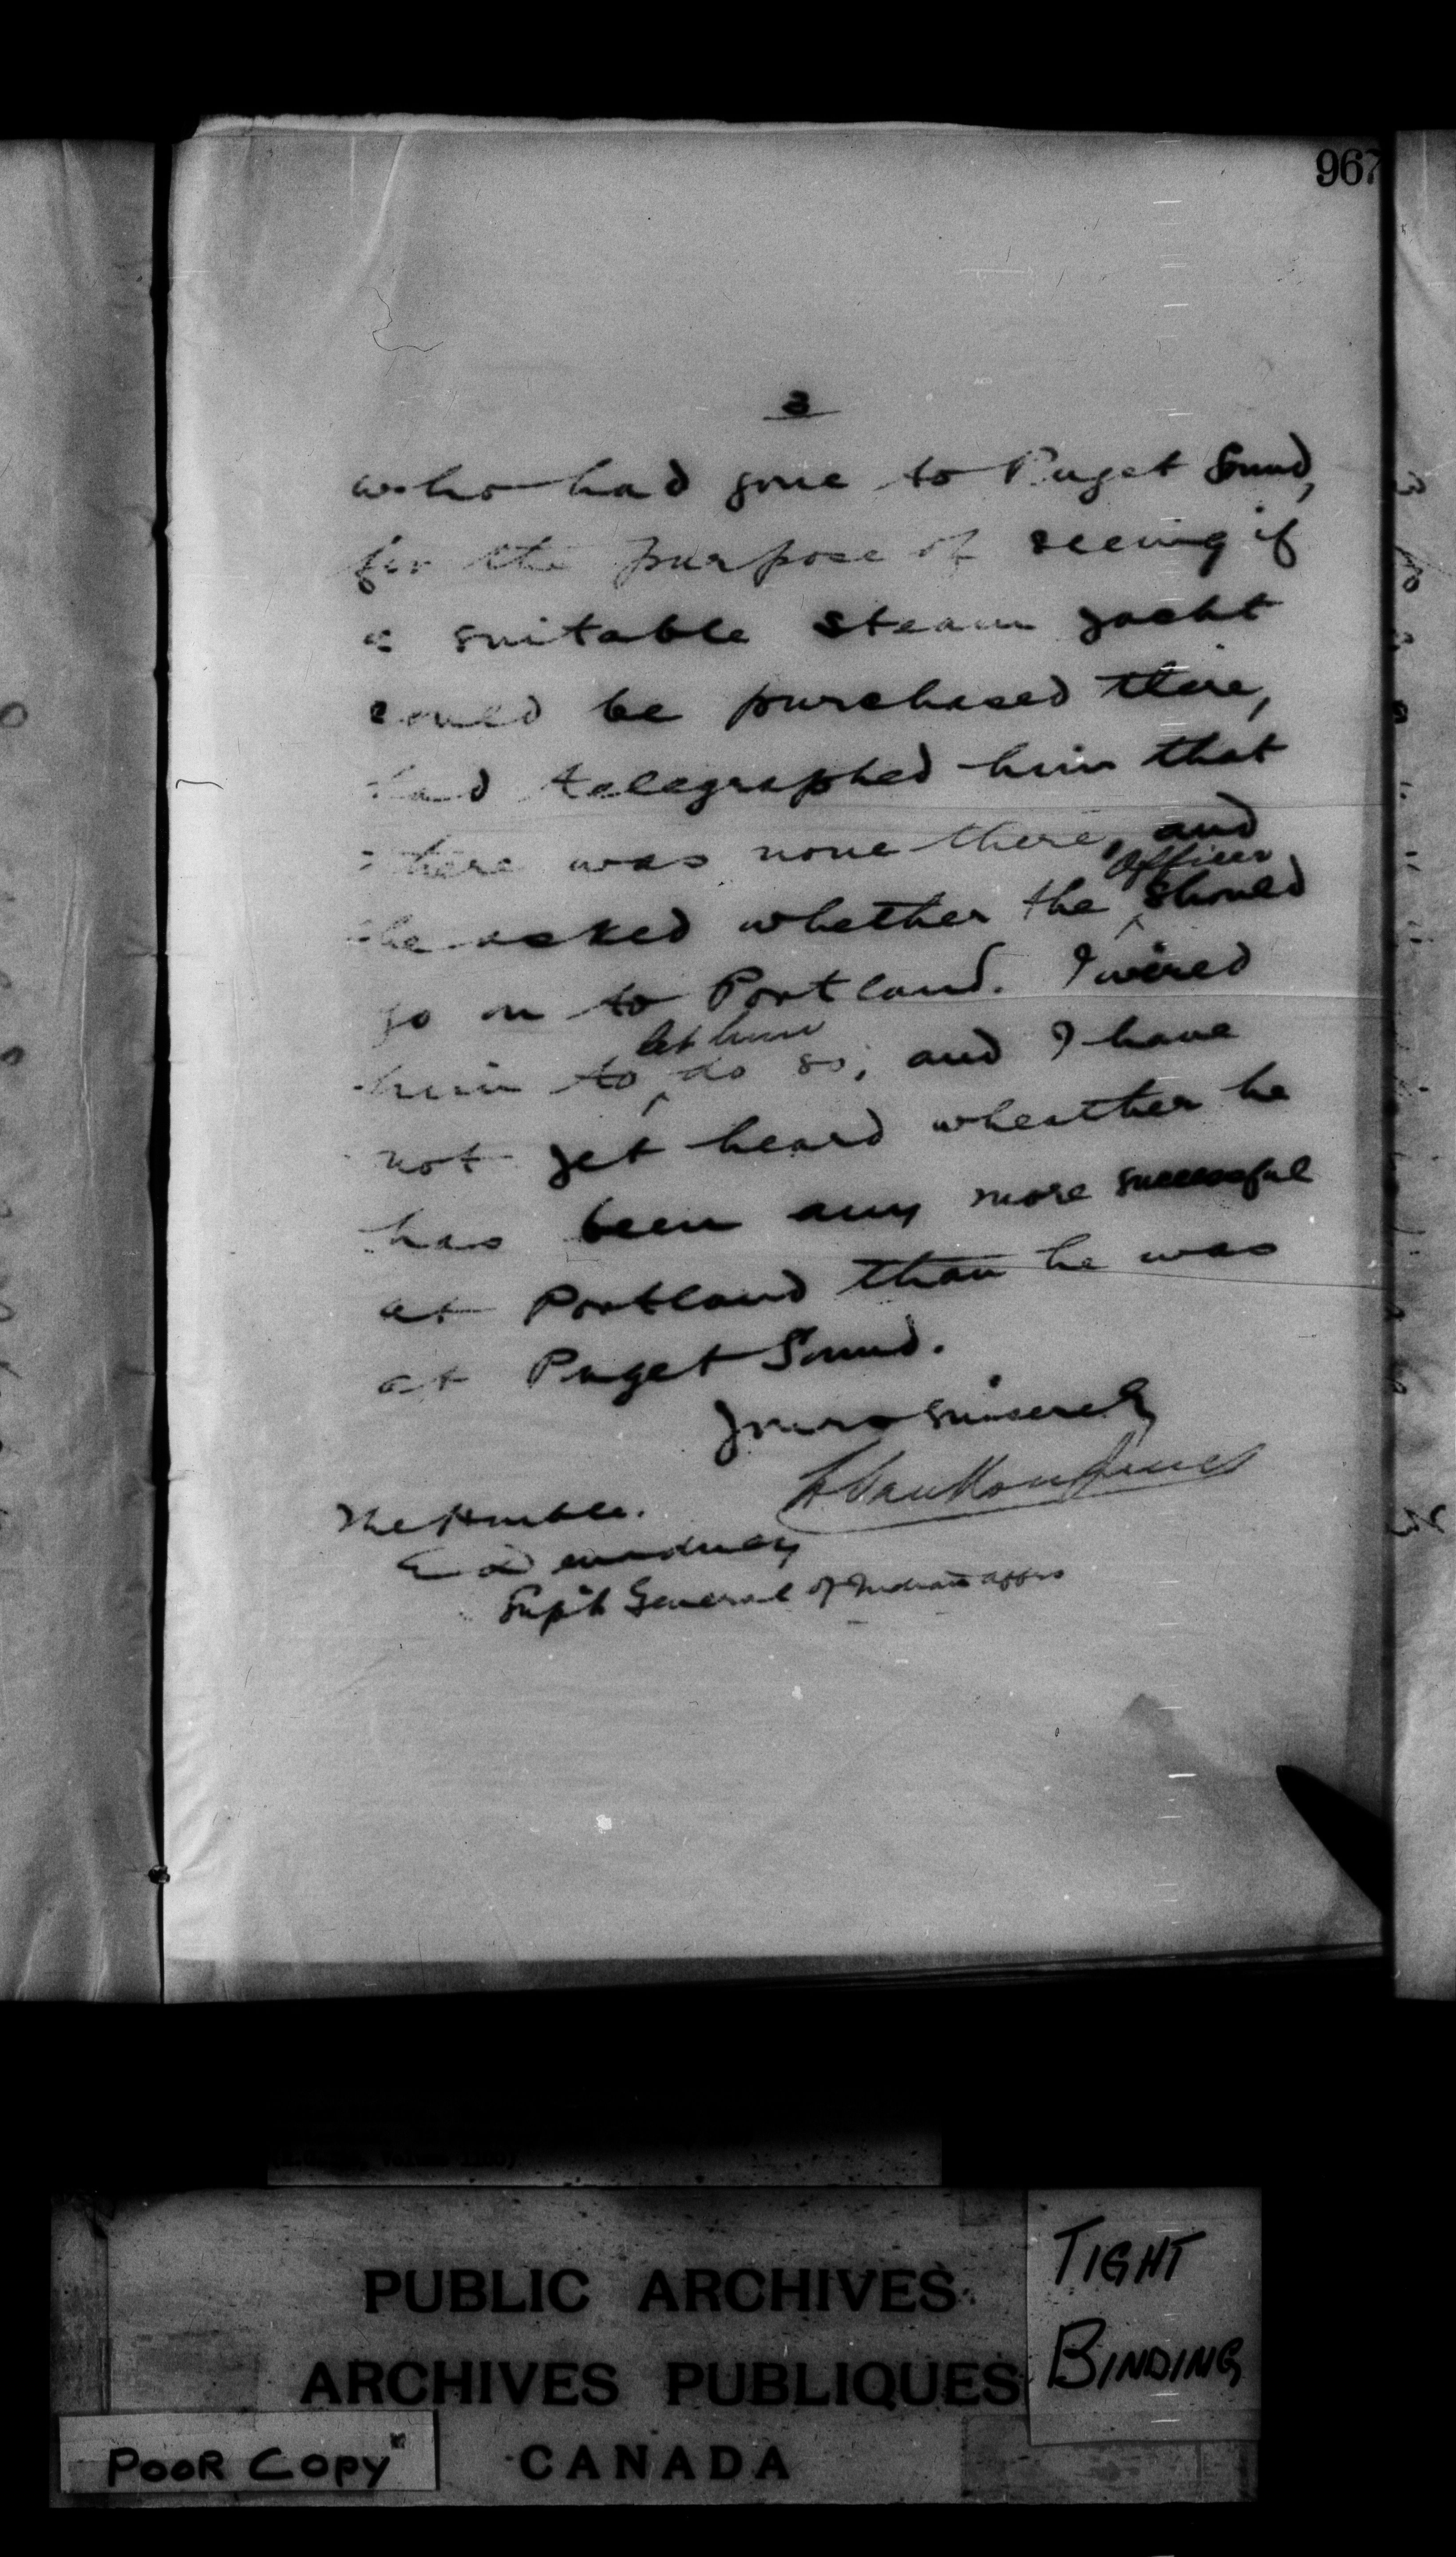 967
3
who had gone to Puget Sound,
for the purpose of seeing if
a suitable steam yacht
could be purchased there,
had telegraphed him that
there was none there, and
he asked whether the ^officer should
go on to Portland. I wired
him to ^let him do so, and I have
not yet heard wheather he
has been any more successful
at Portland than he was
at Puget Sound.
Yours sincerely
L VanKoughnet
The Honble.
E Dewdney
Supt General of Indian Affrs
PUBLIC ARCHIVES
ARCHIVES PUBLIQUES
CANADA
TIGHT
BINDING
POOR COPY